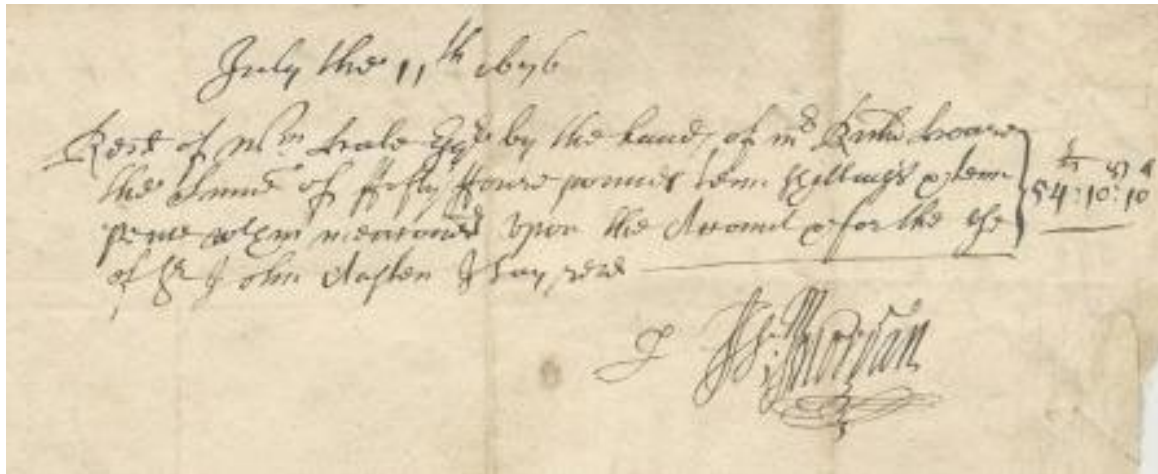 July the 11th 1676
Recd of Wm Hale Esqr by the hands of mr Richd Hoare
the Sume of fifty ffoure pounds tenn shillings & tenn
pence mentioned upon the Account & for the use
of Sr John Austen I say recd
li s d
54:10:10
P Morgan